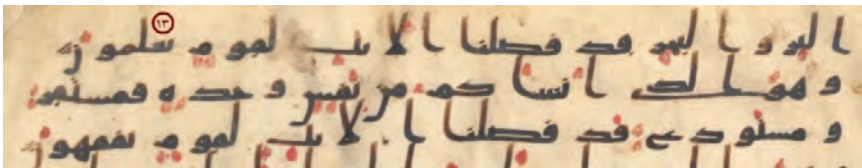 البر و البحر قد فصلنا ا لا يت لقوم يعلمون ١٣
و هو ا لذي ا نشا كم من نفس و حده فمستقر
و مستودع قد فصلنا ا لا يت لقوم يفقهون